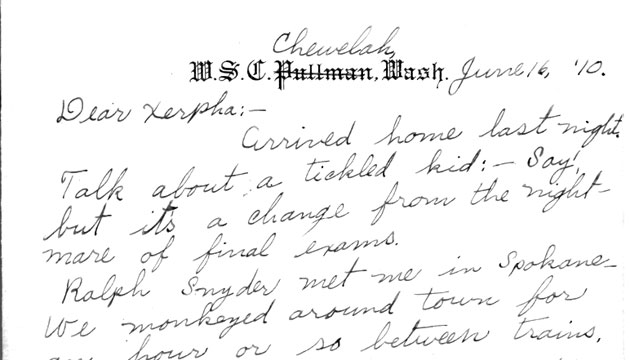 Chewelah,
W.S.C. Pullman, Wash. June 16, '10.
Dear Xerpha:—
Arrived home last night.
Talk about a tickled kid:— Say!
but it's a change from the night-
mare of final exams.
Ralph Snyder met me in Spokane—
We monkeyed around town for
an hour or so between trains.